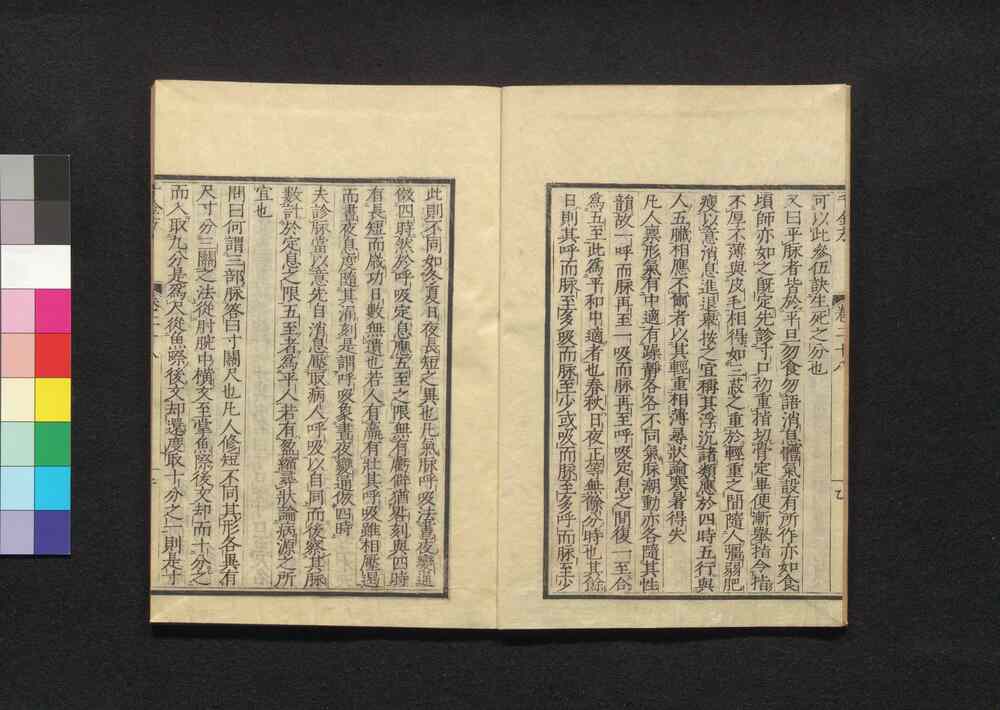 千金方　卷二十八
可以此參伍訣生死之分也
又曰平脉者皆於平旦勿食勿語消息體氣設有所作亦如食
頃師亦如之既定先診寸口初重指切骨定畢便漸舉指令指
不厚不薄與皮毛相得如三菽之重於輕重之間隨人強弱肥
瘦以意消息進退舉按之宜稱其浮沉諸類應於四時五行與
人五臟相應不爾者以其輕重相薄尋狀論寒暑得失
凡人稟形氣有中適有躁靜各各不同氣脉潮動亦各隨其性
韻故一呼而脉再至一吸而脉再至呼吸定息之間復一至合
爲五至此爲平和中適者也春秋日夜正等無餘分時也其餘
日則其呼而脉至多吸而脉至少或吸而脉至多呼而脉至少
此則不同如冬夏日夜長短之異也凡氣脉呼吸法晝夜變通
倣四時然於呼吸定息應五至之限無有虧僻猶晷刻與四時
有長短而歲功日數無遺也若人有羸有壯其呼吸雖相壓遏
而晝夜息度隨其漏刻是謂呼吸象晝夜變通倣四時
夫診脉當以意先自消息壓取病人呼吸以自同而後察其脉
數計於定息之限五至者爲平人若有盈縮尋狀論病源之所
宜也
問曰何謂三部脉答曰寸關尺也凡人修短不同其形各異有
尺寸分三關之法從肘腕中横文至掌魚際後文却而十分之
而入取九分是爲尺從魚際後文却還度取十分之一則是寸